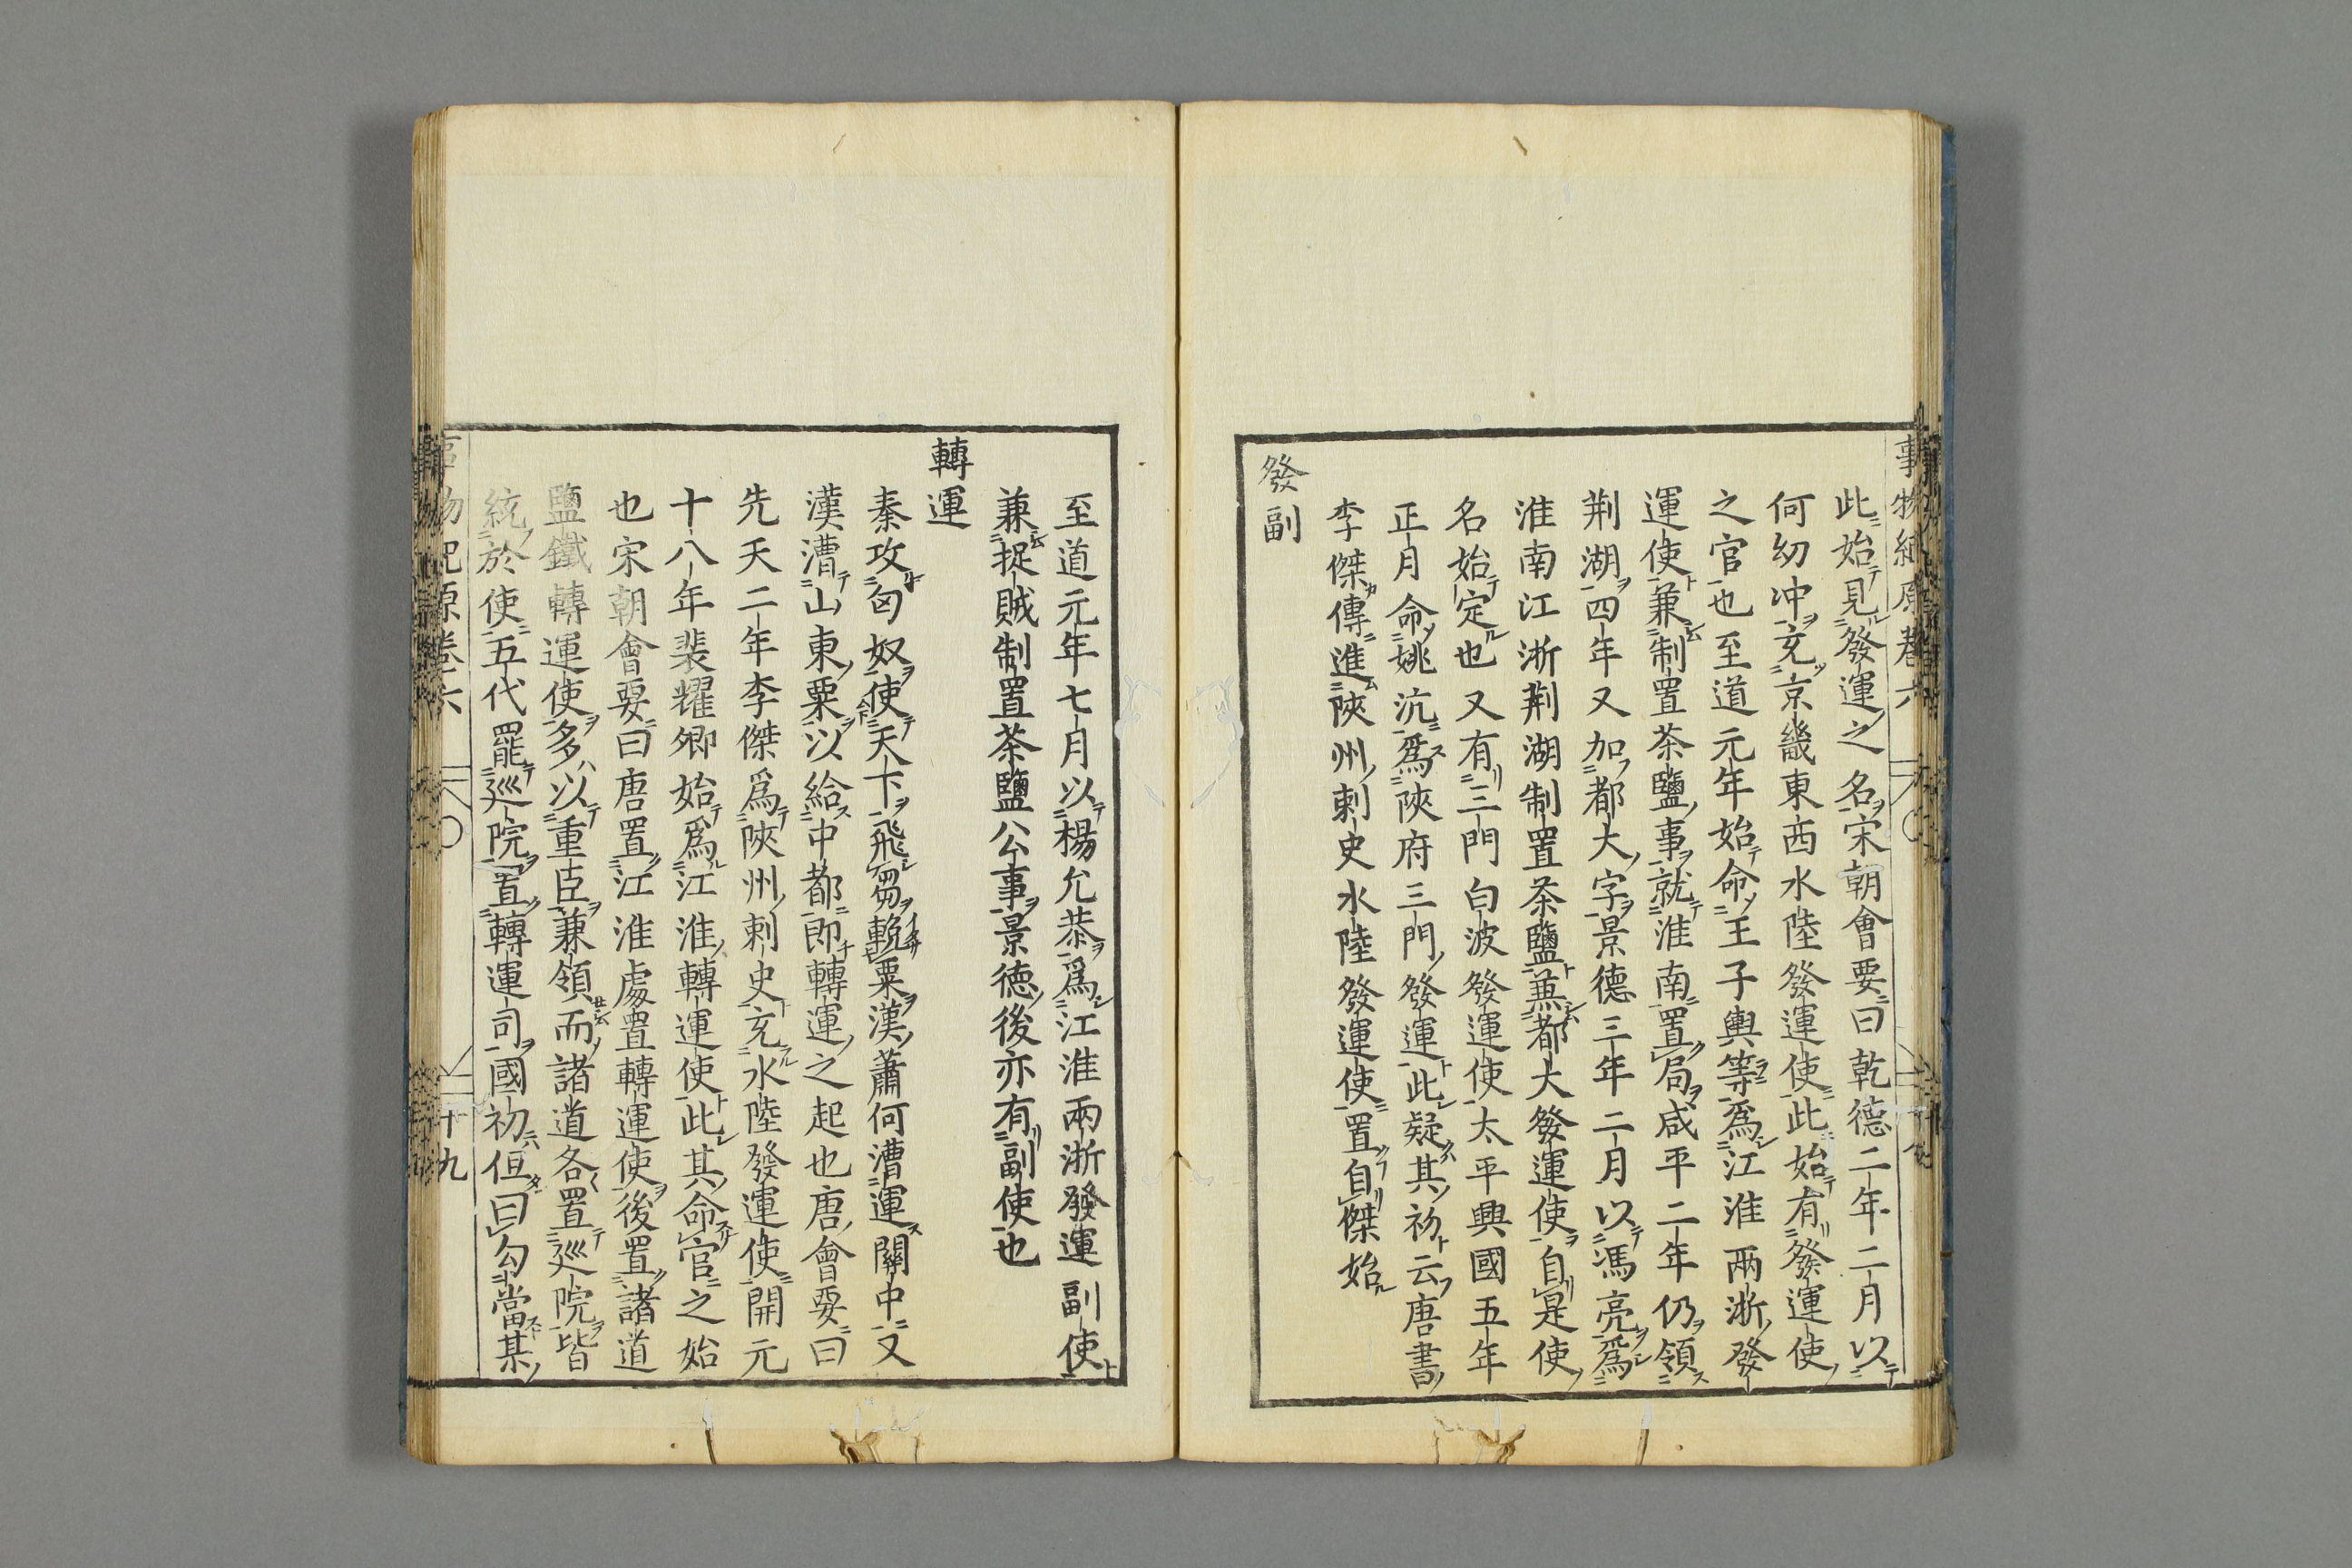 事物紀原卷六
此始見發運之名宋朝會要曰乾德二年二月以
何幼冲充京畿東西水陸發運使此始有發運使
之官也至道元年始命王子輿等爲江淮兩浙發
運使兼制置茶鹽事就淮南置局咸平二年仍領
荆湖四年又加都大字景德三年二月以馮亮爲
淮南江浙荆湖制置茶鹽兼都大發運使自是使
名始定也又有三門白波發運使太平興國五年
正月命姚沆爲陝府三門發運此疑其初云唐書
李傑傳進陝州刺史水陸發運使置自傑始
發副
至道元年七月以楊允恭爲江淮兩浙發運副使
兼捉賊制置茶鹽公事景德後亦有副使也
轉運
秦攻匈奴使天下飛芻輓粟漢蕭何漕運關中又
漢漕山東粟以給中都即轉運之起也唐會要曰
先天二年李傑爲陝州刺史充水陸發運使開元
十八年裴耀卿始爲江淮轉運使此其命官之始
也宋朝會要曰唐置江淮處置轉運使後置諸道
鹽鐵轉運使多以重臣兼領而諸道各置巡院皆
統於使五代罷巡院置轉運司國初但曰勾當某
事物紀原卷六 十九